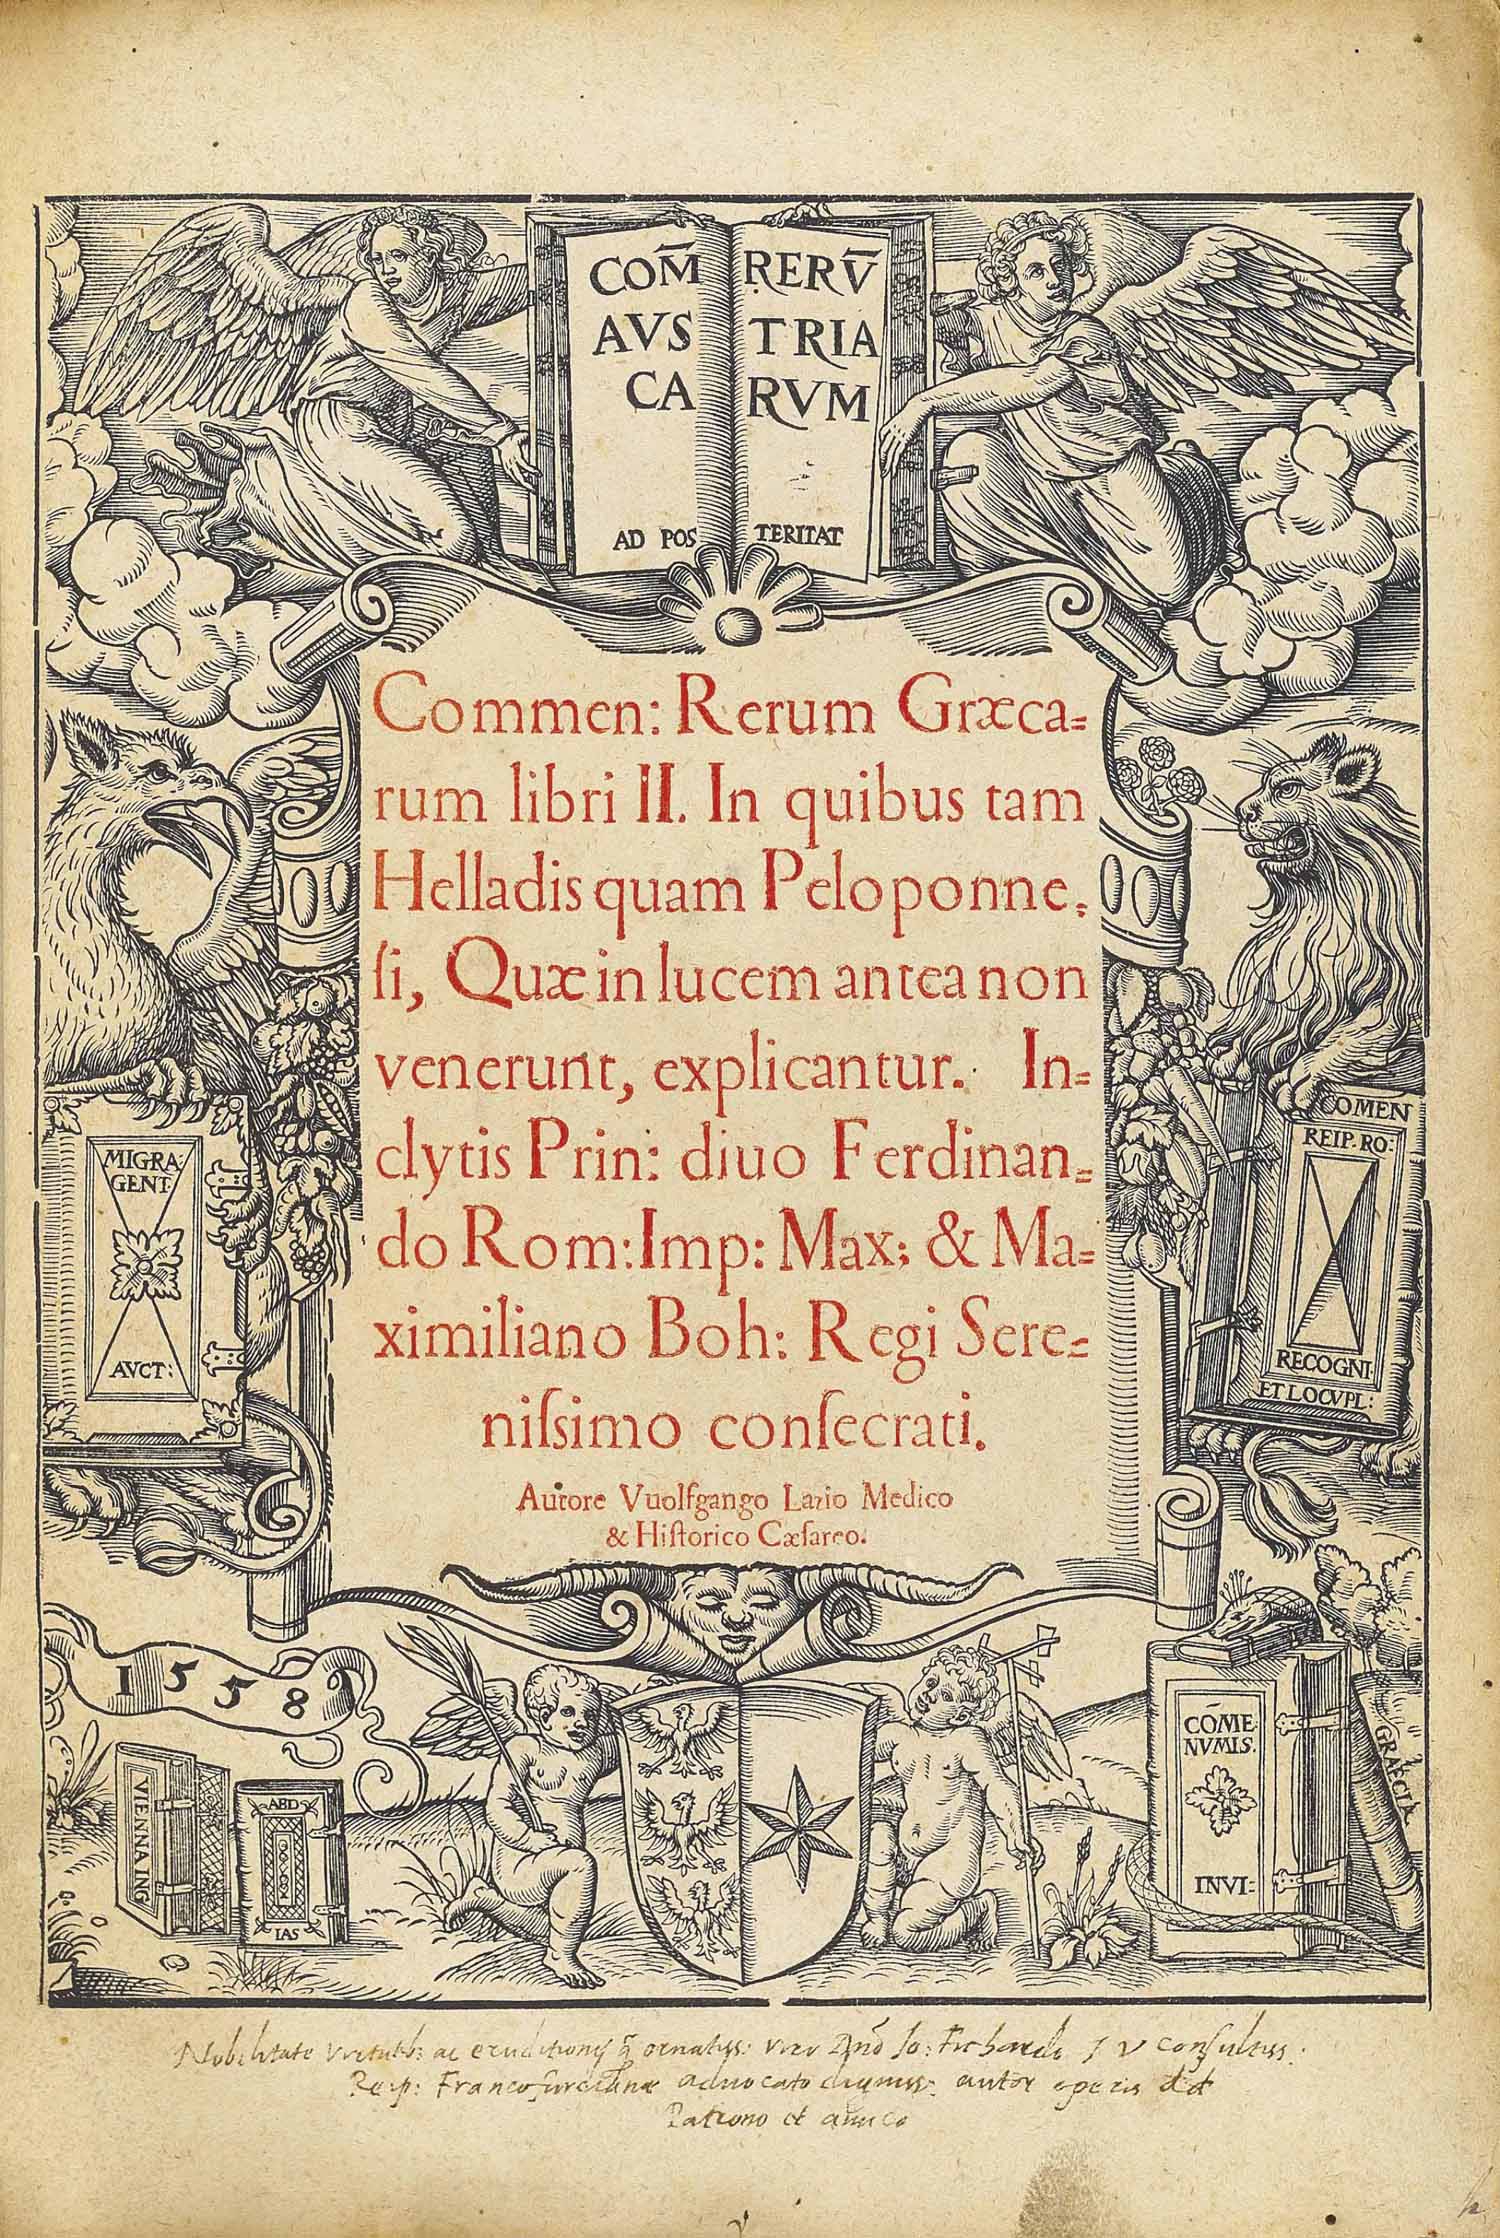 COM̄ RERV̄
AVS TRIA
CA RVM
AD POS TERITAT
Commen: Rerum Græca=
rum libri II. In quibus tam
Helladis quam Peloponne,
ſi, Quæ in lucem antea non
venerunt, explicantur. In=
clytis Prin: diuo Ferdinan=
do Rom: Imp: Max: & Ma=
ximiliano Boh: Regi Sere=
niſsimo conſecrati.
Autore Vuolfgango Lazio Medico
& Hiſtorico Cæſareo.
MIGRA:
GENT
AVCT:
COMEN
REIP. RO:
RECOGNI
ET LOCVPL:
1558
VIENNA ING
ABD
IAS
CŌME
NVMIS.
INVI:
GRAECIA
Nobilitate ac eruditionis ornatiss: viro Dn̄o Io: Fichardo I V conſultiss:
Reip: advocato digniss: autor operis dd
Patrono et amico